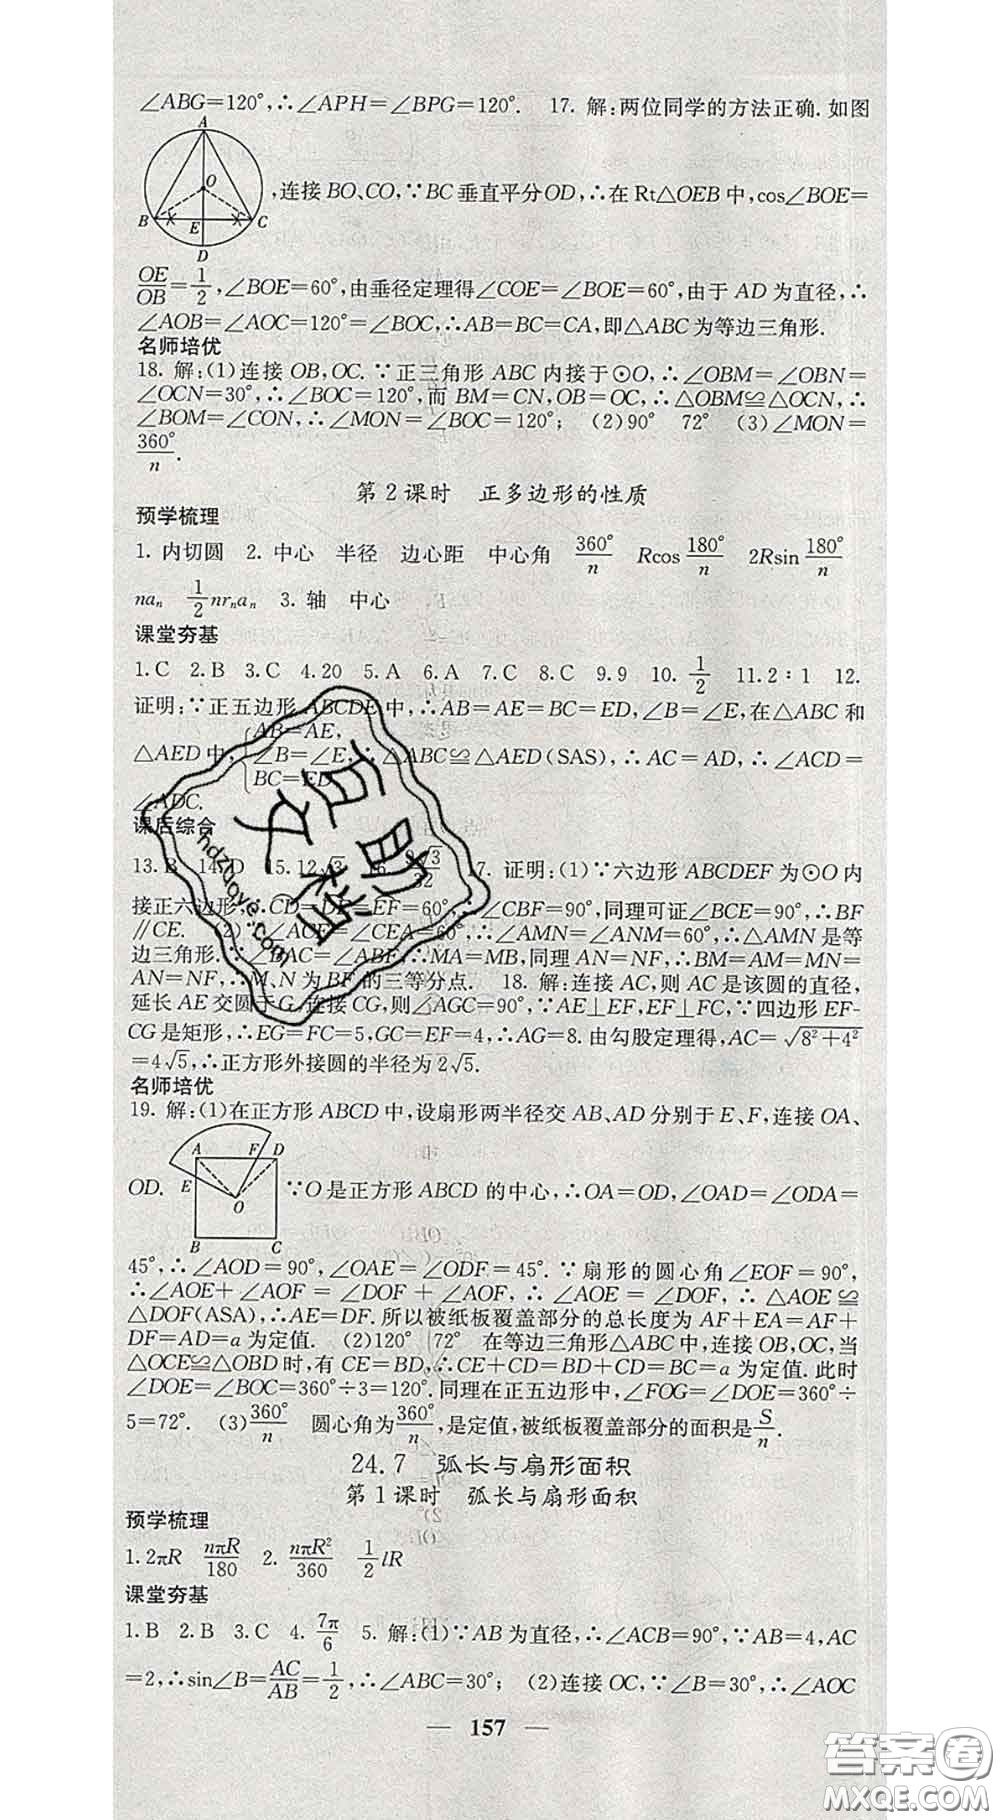 ∠ABG=120°,∴∠APH=∠BPG=120°. 17. 解:两位同学的方法正确.如图
A
O
B E C
D
,连接BO、CO,∵BC垂直平分OD,∴在Rt△OEB中,cos∠BOE=
OE/OB=1/2,∠BOE=60°,由垂径定理得∠COE=∠BOE=60°,由于AD为直径,∴
∠AOB=∠AOC=120°=∠BOC,∴AB=BC=CA,即△ABC为等边三角形.
名师培优
18. 解:(1)连接OB,OC.∵正三角形ABC内接于⊙O,∴∠OBM=∠OBN=
∠OCN=30°,∴∠BOC=120°,而BM=CN,OB=OC,∴△OBM≌△OCN,∴
∠BOM=∠CON,∴∠MON=∠BOC=120°; (2)90° 72° (3)∠MON=
360°/n.
第2课时 正多边形的性质
预学梳理
1. 内切圆 2. 中心 半径 边心距 中心角 360°/n Rcos180°/n 2Rsin180°/n
naₙ 1/2nrₙaₙ 3. 轴 中心
课堂夯基
1.C 2.B 3.C 4.20 5.A 6.A 7.C 8.C 9.9 10.1/2 11.2∶1 12.
证明:∵正五边形ABCDE中,∴AB=AE=BC=ED,∠B=∠E,在△ABC和
△AED中,{AB=AE, ∠B=∠E, BC=ED ∴△ABC≌△AED(SAS),∴AC=AD,∴∠ACD=
∠ADC.
课后综合
13.B 14.D 15.12√3 16. 9√3/32 17. 证明:(1)∵六边形ABCDEF为⊙O内
接正六边形,∴CD=DE=EF=60°,∴∠CBF=90°,同理可证∠BCE=90°,∴BF
∥CE. (2)∵∠ACE=∠CEA=60°,∴∠AMN=∠ANM=60°,∴△AMN是等
边三角形.∵∠BAC=∠ABF,∴MA=MB,同理AN=NF,∴BM=AM=MN=
AN=NF,∴M、N为BF的三等分点. 18. 解:连接AC,则AC是该圆的直径,
延长AE交圆于G,连接CG,则∠AGC=90°,∵AE⊥EF,EF⊥FC,∵四边形EF-
CG是矩形,∴EG=FC=5,GC=EF=4,∴AG=8.由勾股定理得,AC=√8²+4²
=4√5,∴正方形外接圆的半径为2√5.
名师培优
19. 解:(1)在正方形ABCD中,设扇形两半径交AB、AD分别于E、F,连接OA、
A F D
E O
B C
OD. ∵O是正方形ABCD的中心,∴OA=OD,∠OAD=∠ODA=
45°,∴∠AOD=90°,∠OAE=∠ODF=45°.∵扇形的圆心角∠EOF=90°,
∴∠AOE+∠AOF=∠DOF+∠AOF,∴∠AOE=∠DOF,∴△AOE≌
△DOF(ASA),∴AE=DF.所以被纸板覆盖部分的总长度为AF+EA=AF+
DF=AD=a为定值. (2)120° 72° 在等边三角形△ABC中,连接OB,OC,当
△OCE≌△OBD时,有CE=BD,∴CE+CD=BD+CD=BC=a为定值.此时
∠DOE=∠BOC=360°÷3=120°.同理在正五边形中,∠FOG=∠DOE=360°÷
5=72°. (3)360°/n 圆心角为360°/n,是定值,被纸板覆盖部分的面积是S/n.
24.7 弧长与扇形面积
第1课时 弧长与扇形面积
预学梳理
1.2πR nπR/180 2. nπR²/360 1/2lR
课堂夯基
1.B 2.B 3.C 4. 7π/6 5. 解:(1)∵AB为直径,∴∠ACB=90°,∵AB=4,AC
=2,∴sin∠B=AC/AB=1/2,∴∠ABC=30°; (2)连接OC,∵∠B=30°,∴∠AOC
— 157 —
答案圈
MXQE.COM